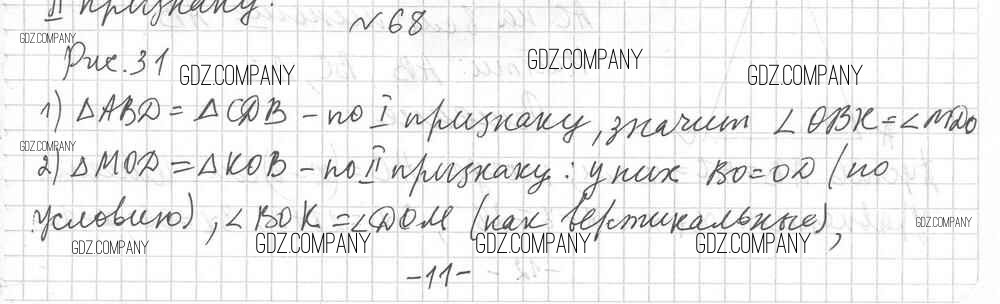 II признаку.
№68
GDZ.COMPANY
Рис. 31
GDZ.COMPANY GDZ.COMPANY GDZ.COMPANY
1) △ABD = △CDB – по I признаку, значит ∠OBK = ∠MDO
GDZ.COMPANY
2) △MOD = △KOB – по II признаку: у них BO = OD (по
условию), ∠BOK = ∠DOM (как вертикальные),
GDZ.COMPANY GDZ.COMPANY GDZ.COMPANY GDZ.COMPANY GDZ.COMPANY
-11-